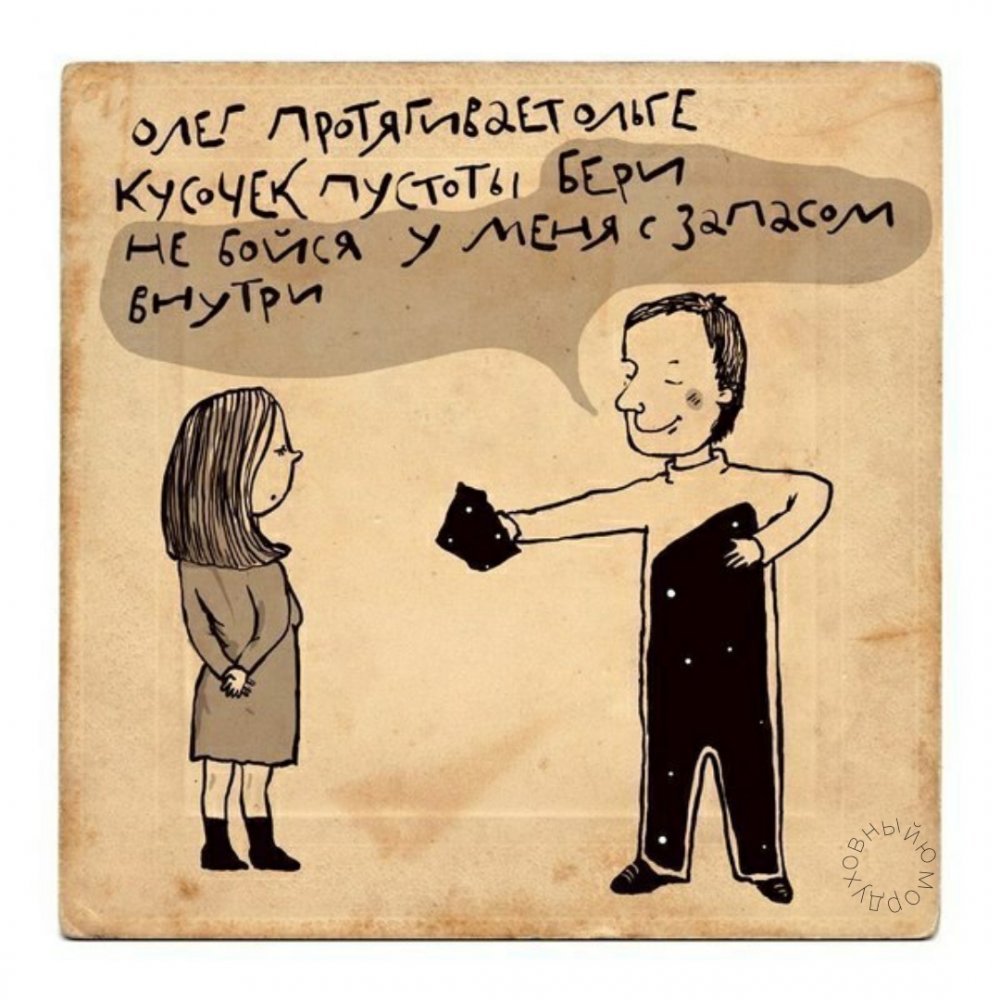 олег протягивает ольге
кусочек пустоты бери
не бойся у меня с запасом
внутри
духовныйюмор